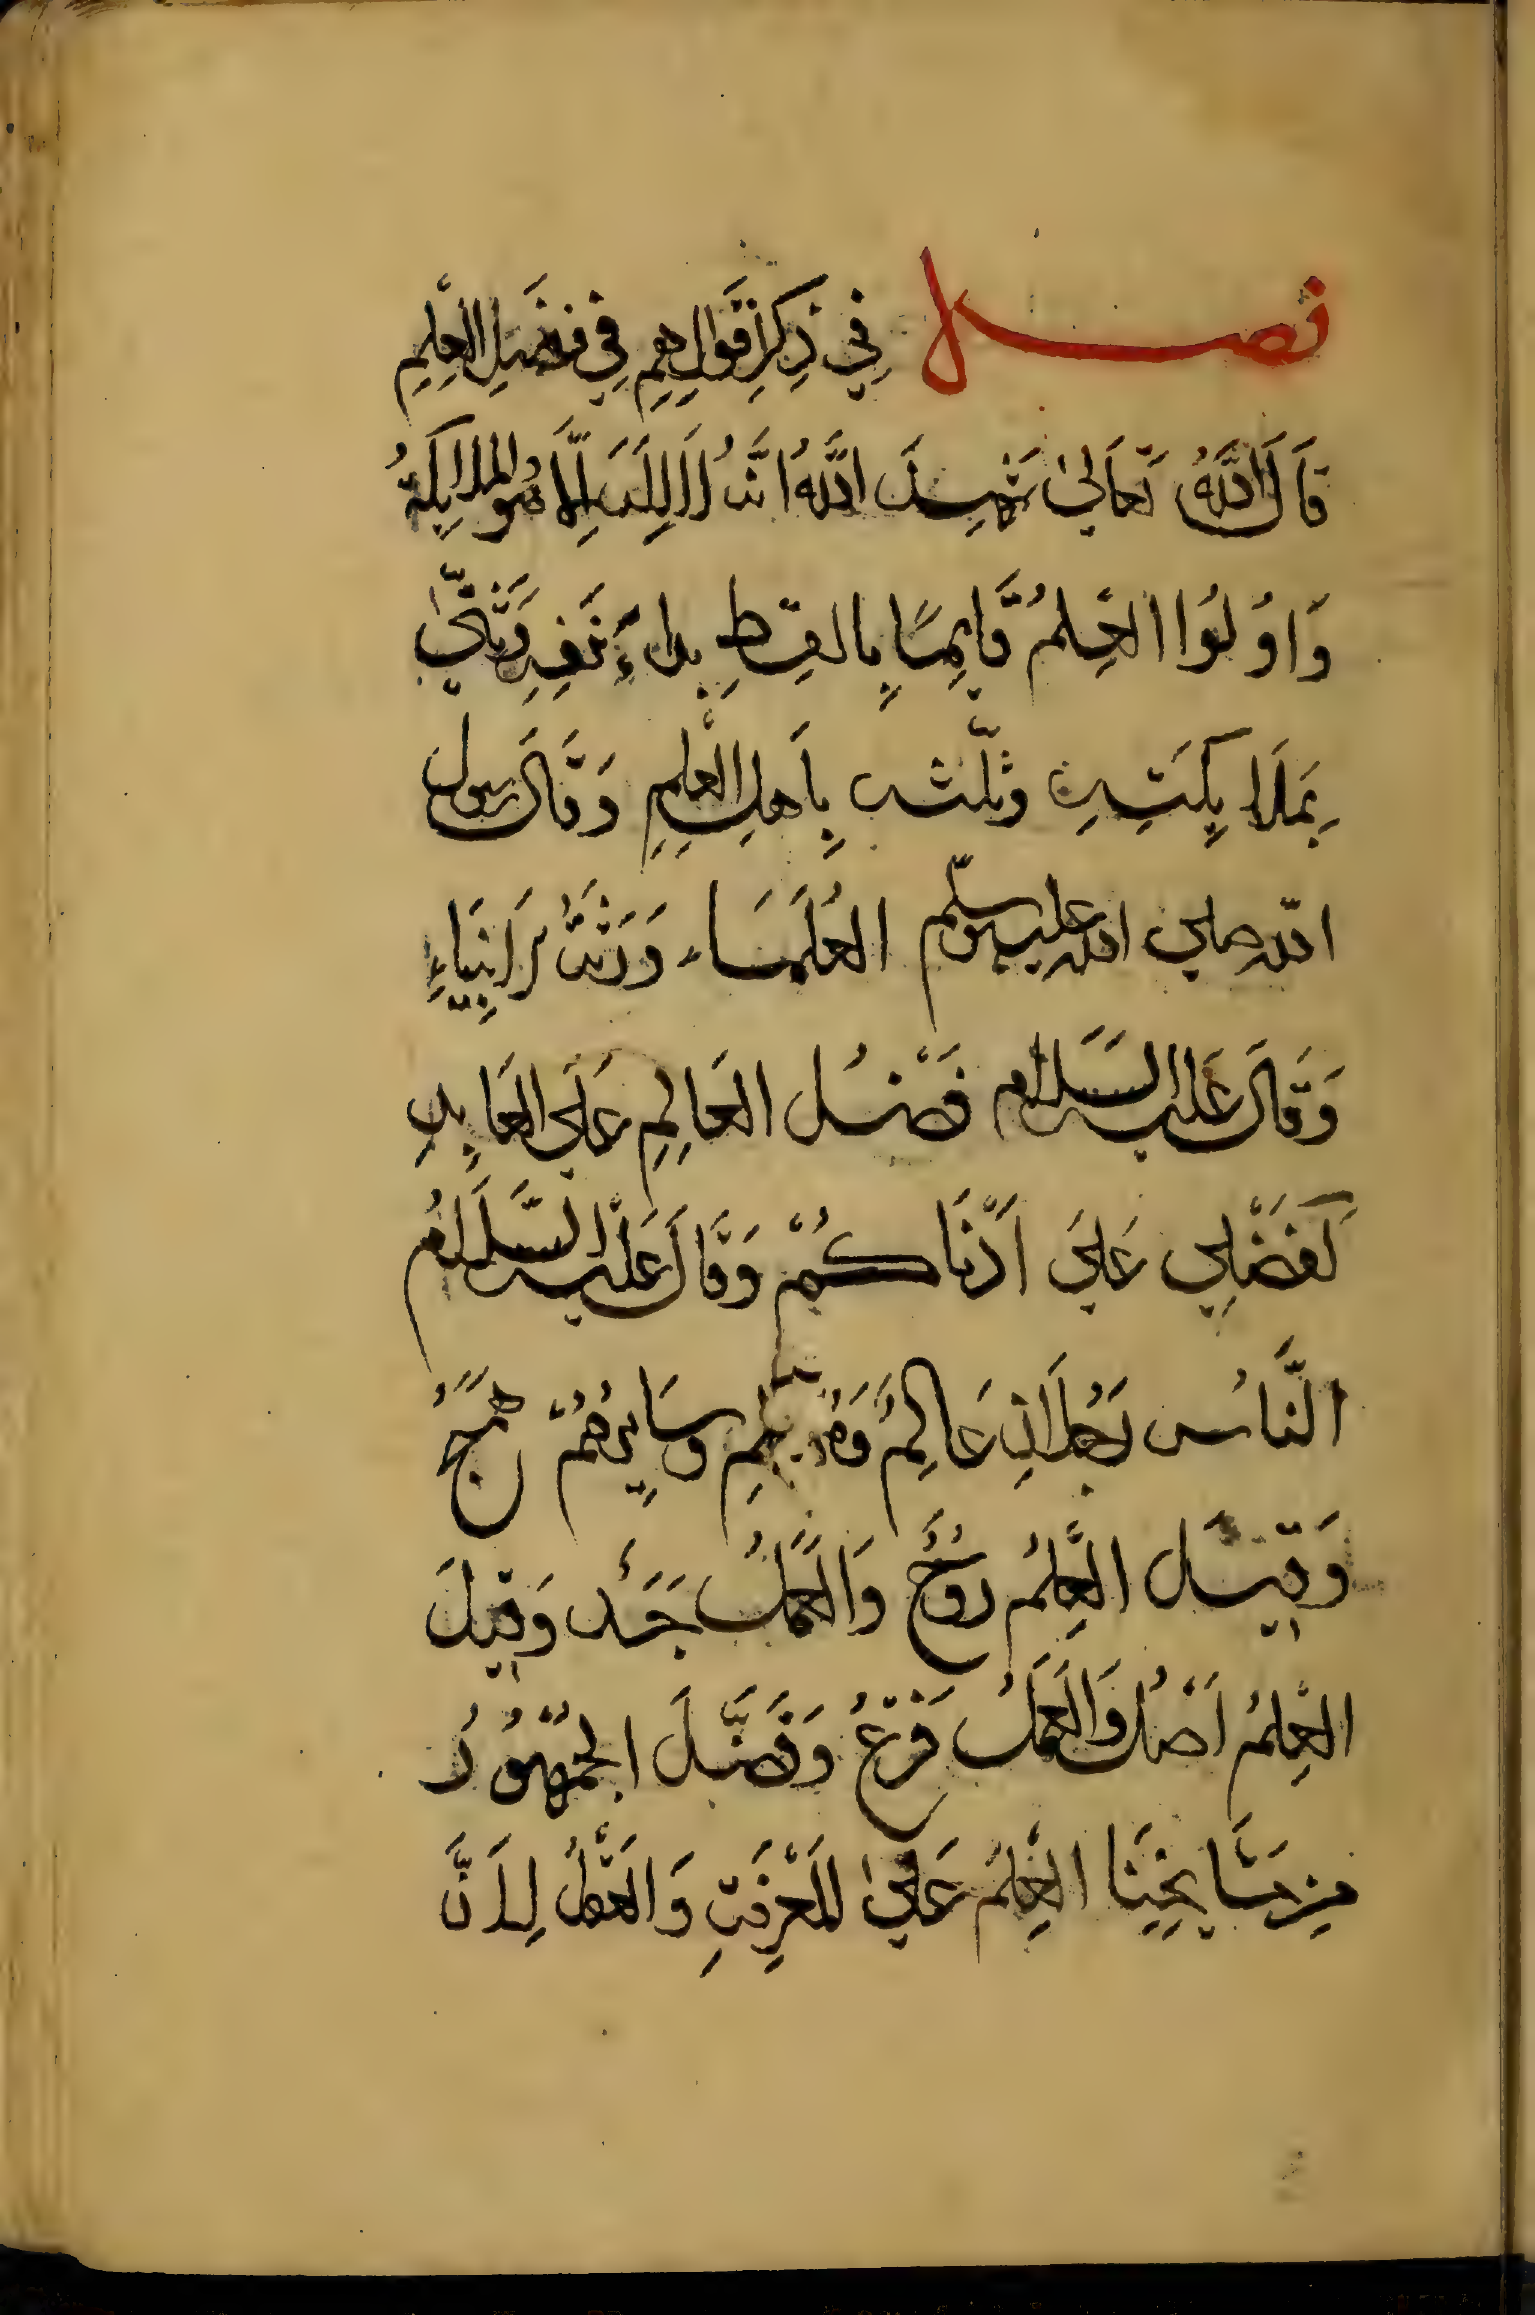 فصل في ذِكرِ أَقوالِهِم في فضلِ العِلمِ
قَالَ اللهُ تَعَالىٰ شَهِدَ اللهُ اَنَّهُ لَا اِلٰهَ اِلَّا هُوَ والملايكةُ
وَاوُلُوا العِلمُ قَايِمًا بِالقِسطِ بداءَ بنَفسِهِ وَثَنّىٰ
بِمَلَايِكَتِهِ وثلّث بِاَهلِ العِلمِ وَقَالَ رسول
الله صلي الله عليه وسلّم العُلَمَاء وَرَثَةُ الَانبِيَاءِ
وَقَالَ عَليه السَّلام فَضْلُ العَالِمِ عَلَى العَابِدِ
كَفَضْلِي عَليَ اَدْنَاكُمْ وَقَالَ عَلَيْه السَّلَامُ
النَّاسُ رَجُلَانِ عَالِمٌ وَمُتعلم وسَايِرُهُمْ هَمَجٌ
وَقِيلَ العِلمُ رُوحٌ وَالعَمَلُ جَسَد وَقِيلَ
العِلمُ اَصْلٌ وَالعَمَلُ فَرْعٌ وَفَضَّلَ الجُمْهُورُ
مِن مَشَايخِنَا العِلمَ عَلىٰ المَعْرِفَةِ وَالعَقْل لِاَنَّ